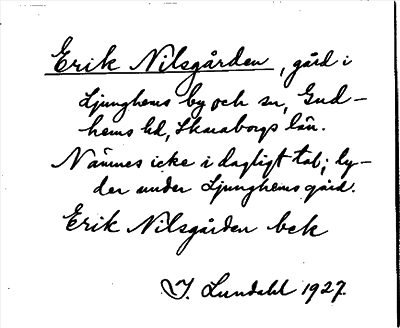 Erik Nilsgården, gård i
Ljunghems by och sn, Gud-
hems hd, Skaraborgs län.
Nämnes icke i dagligt tal; ly-
der under Ljunghems gård.
Erik Nilsgården bek
J. Lundahl 1927.